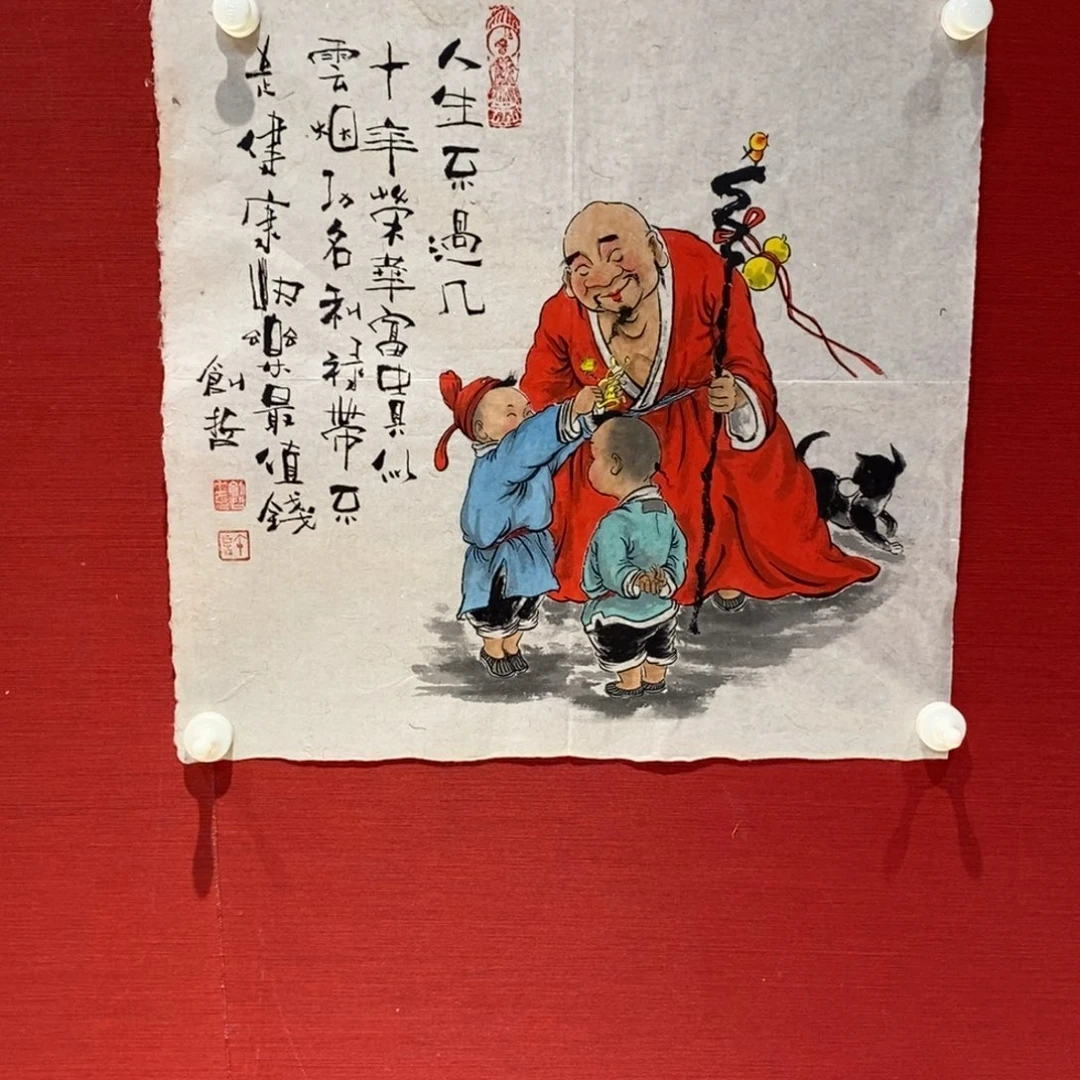 人生不過几
十年榮華富貴似
雲烟功名利禄帶不
走健康快樂最值錢
創哲